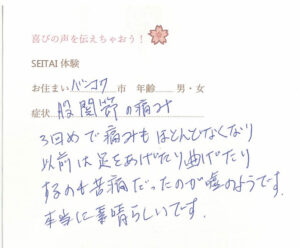 喜びの声を伝えちゃおう！
SEITAI 体験
お住まい バンコク 市 年齢 男・女
症状 股関節の痛み
3回めで痛みもほとんどなくなり
以前は足をあげたり曲げたり
するのも苦痛だったのが嘘のようです。
本当に素晴らしいです。